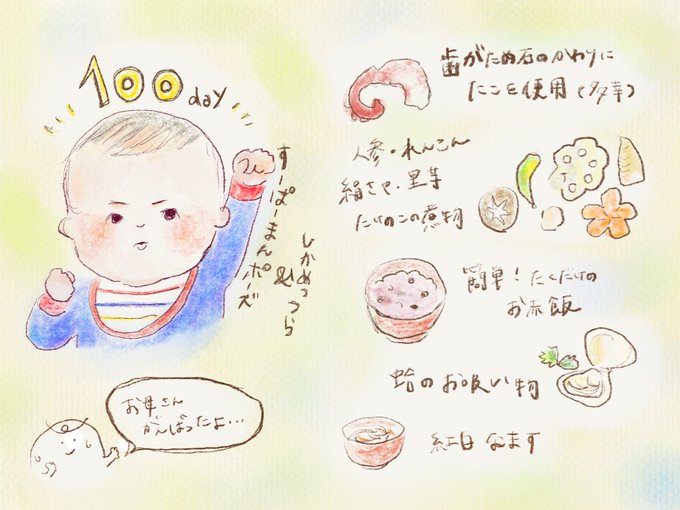 100 day
すーぱーまんポーズ
&
しかめっつら
お母さん
がんばったよ…
歯がため石のかわりに
たこを使用(多幸)
人参・れんこん
絹さや・里芋
たけのこの煮物
簡単!たくだけの
お赤飯
蛤のお吸い物
紅白なます